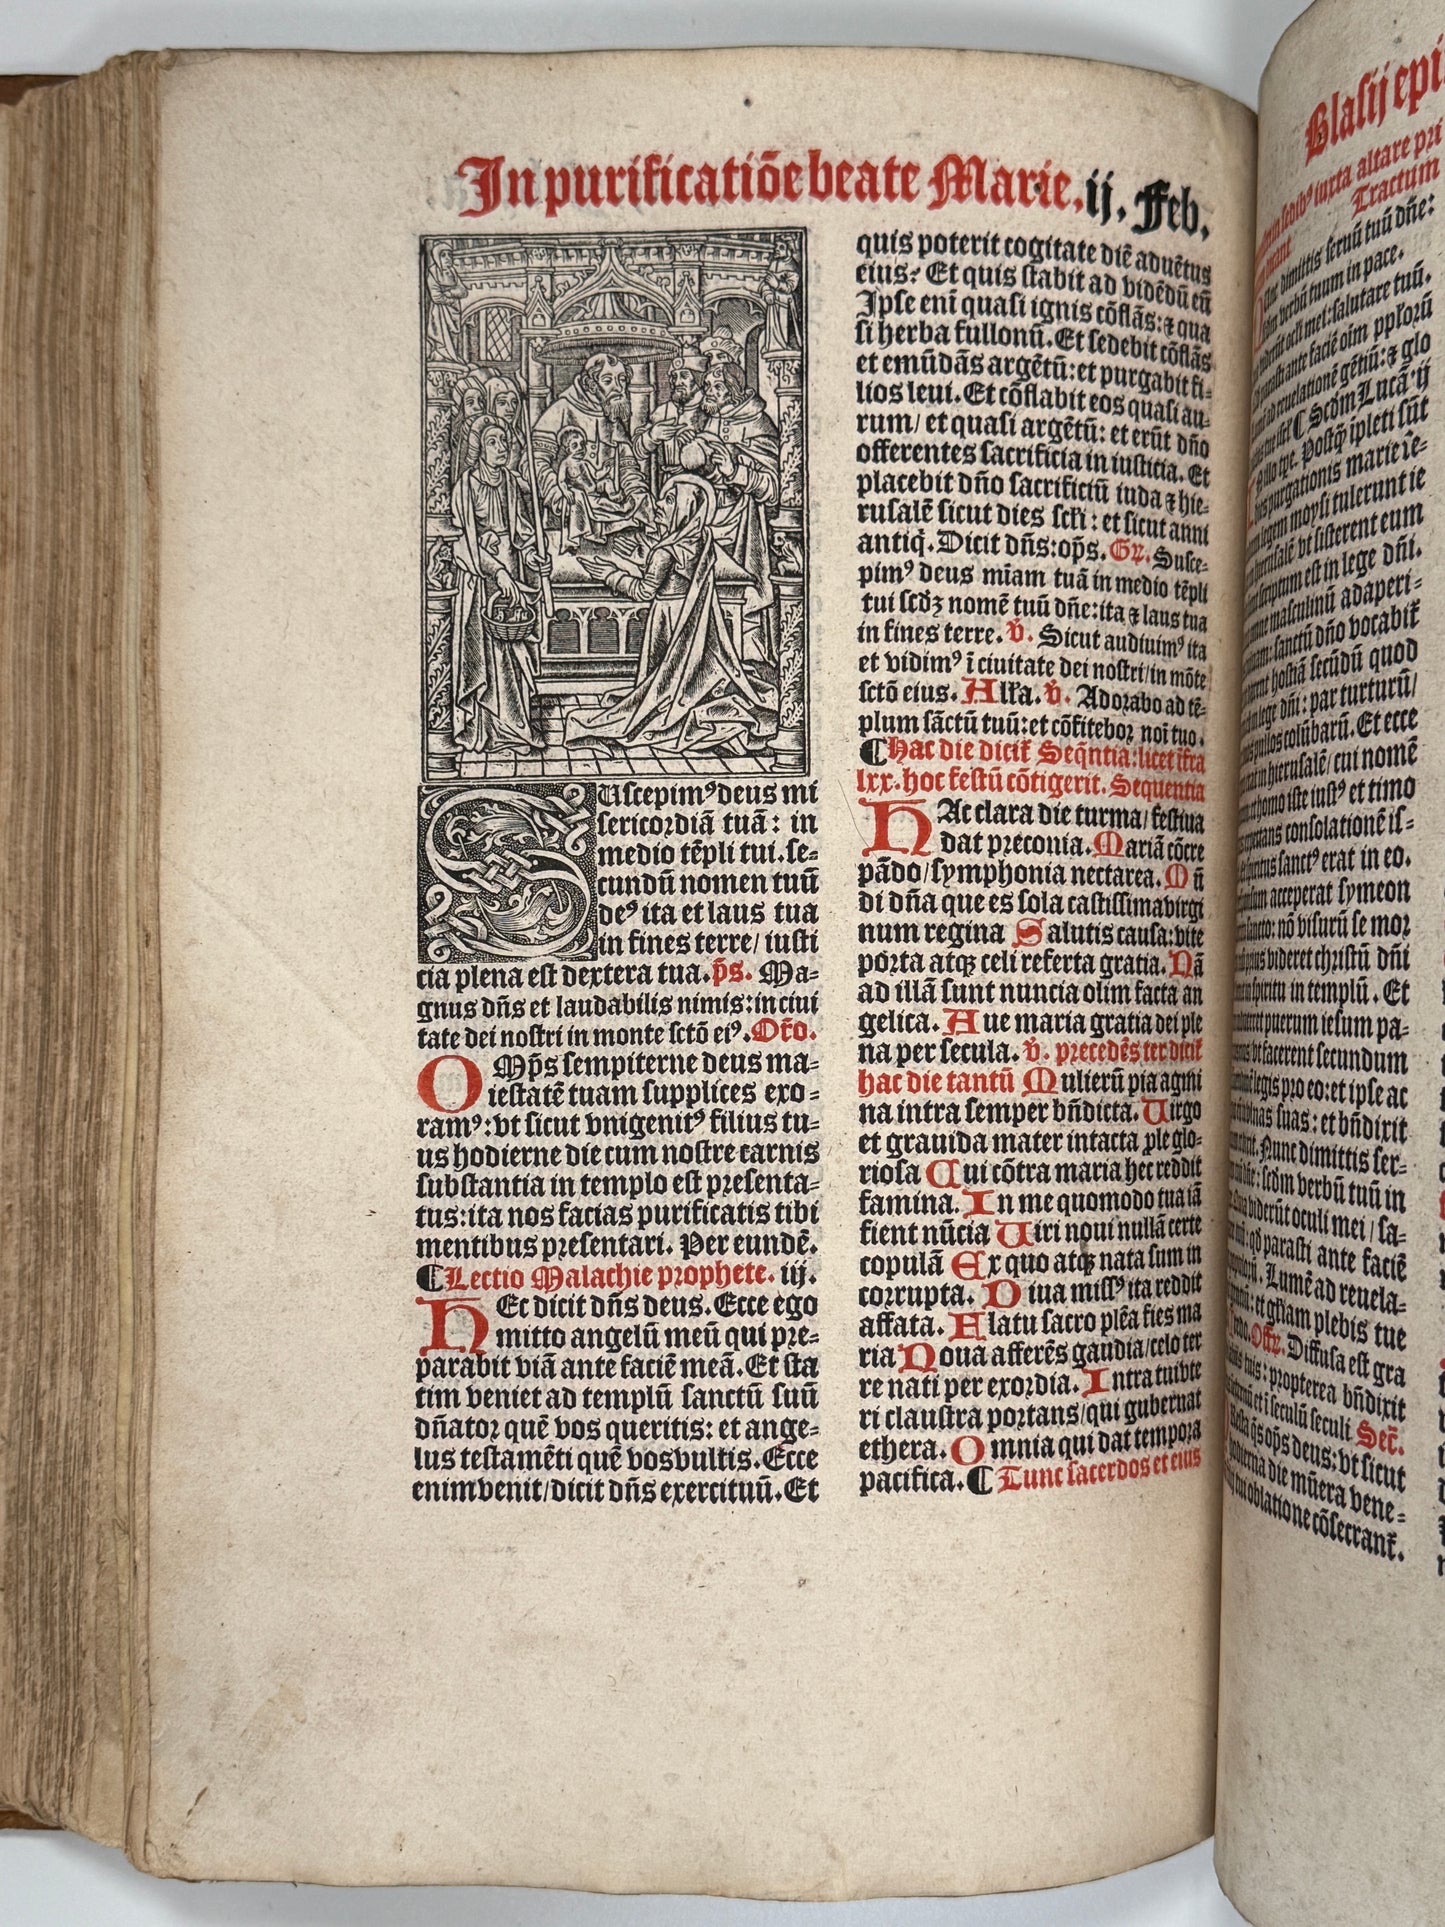 In purificatiōe beate Marie. ij. Feb.
SUscepim⁹ deus mi
sericordiā tuā: in
medio tēpli tui. se=
cundū nomen tuū
de⁹ ita et laus tua
in fines terre/ iusti
cia plena est dextera tua. p̄s. Ma=
gnus dn̄s et laudabilis nimis: in ciui
tate dei nostri in monte sctō ei⁹. Or̄o.
OMp̄s sempiterne deus ma=
iestatē tuam supplices exo=
ram⁹: vt sicut vnigenit⁹ filius tu=
us hodierne die cum nostre carnis
substantia in templo est presenta=
tus: ita nos facias purificatis tibi
mentibus presentari. Per eundē.
¶ Lectio Malachie prophete. iij.
HEc dicit dn̄s deus. Ecce ego
mitto angelū meū qui pre=
parabit viā ante faciē meā. Et sta
tim veniet ad templū sanctū suū
dn̄ator quē vos queritis: et ange=
lus testamēti quē vos vultis. Ecce
enim venit/ dicit dn̄s exercituū. Et
quis poterit cogitate diē aduētus
eius? Et quis stabit ad vidēdū eū
Ipse eni quasi ignis cōflās: ⁊ qua
si herba fullonū. Et sedebit cōflās
et emūdās argētū: et purgabit fi=
lios leui. Et cōflabit eos quasi au=
rum/ et quasi argētū: et erūt dn̄o
offerentes sacrificia in iusticia. Et
placebit dn̄o sacrificiū iuda ⁊ hie=
rusalē sicut dies sc̄li: et sicut anni
antiq̄. Dicit dn̄s: op̄s. Gr. Susce=
pim⁹ deus miam tuā in medio tēpli
tui scd̄ꝫ nomē tuū dn̄e: ita ⁊ laus tua
in fines terre. v̄. Sicut audiuim⁹ ita
et vidim⁹ ī ciuitate dei nostri/ in mōte
sctō eius. Allĺa. v̄. Adorabo ad tē=
plum sāctū tuū: et cōfitebor noī tuo.
¶ Hac die dicit̄ Seq̄ntia: licet īfra
lxx. hoc festū cōtigerit. Sequentia
HAc clara die turma/ festiua
dat preconia. Mariā cōcre
pādo/ symphonia nectarea. Mū
di dn̄a que es sola castissima virgi
num regina Salutis causa: vite
porta atqꝫ celi referta gratia. Nā
ad illā sunt nuncia olim facta an
gelica. Aue maria gratia dei ple
na per secula. v̄. precedēs ter dicit̄
hac die tantū Mulierū pia agmi
na intra semper bn̄dicta. Uirgo
et grauida mater intacta ꝓle glo=
riosa Cui cōtra maria hec reddit
famina. In me quomodo tua iā
fient nūcia Uiri noui nullā certe
copulā Ex quo atqꝫ nata sum in
corrupta. Diua miss⁹ ita reddit
affata. Elatu sacro plēa fies ma
ria Noua afferēs gaudia/ celo ter
re nati per exordia. Intra tui vte
ri claustra portans/ qui gubernat
ethera. Omnia qui dat tempora
pacifica. ¶ Tunc sacerdos et eius
Blasij epi
iuxta altare pri
Tractum
dimittis seruū tuū dn̄e:
verbū tuum in pace.
salutare tuū.
ante faciē oīm ppl̄orū
reuelationē gētiū: ⁊ glo
¶ Scd̄m Lucā. ij
Postq̄ īpleti sūt
purgationis marie ī=
legem moysi tulerunt ie
vt sisterent eum
scriptum est in lege dn̄i.
masculinū adaperi=
sanctū dn̄o vocabit̄
hostiā secūdū quod
lege dn̄i: par turturū/
pullos colūbarū. Et ecce
in hierusalē/ cui nomē
homo iste iust⁹ et timo
consolationē is=
sanct⁹ erat in eo.
acceperat symeon
nō visurū se mor
videret christū dn̄i
spiritu in templū. Et
puerum iesum pa=
vt facerent secundum
legis pro eo: et ipse ac
vlnas suas: et bn̄dixit
Nunc dimittis ser=
scd̄m verbū tuū in
viderūt oculi mei/ sa=
qd̄ parasti ante faciē
Lumē ad reuela=
et gl̄iam plebis tue
Offr. Diffusa est gra
tuis: propterea bn̄dixit
et ī seculū seculi Secr̄.
q̄s op̄s deus: vt sicut
hodierna die mūera vene=
oblatione cōsecrant̄.